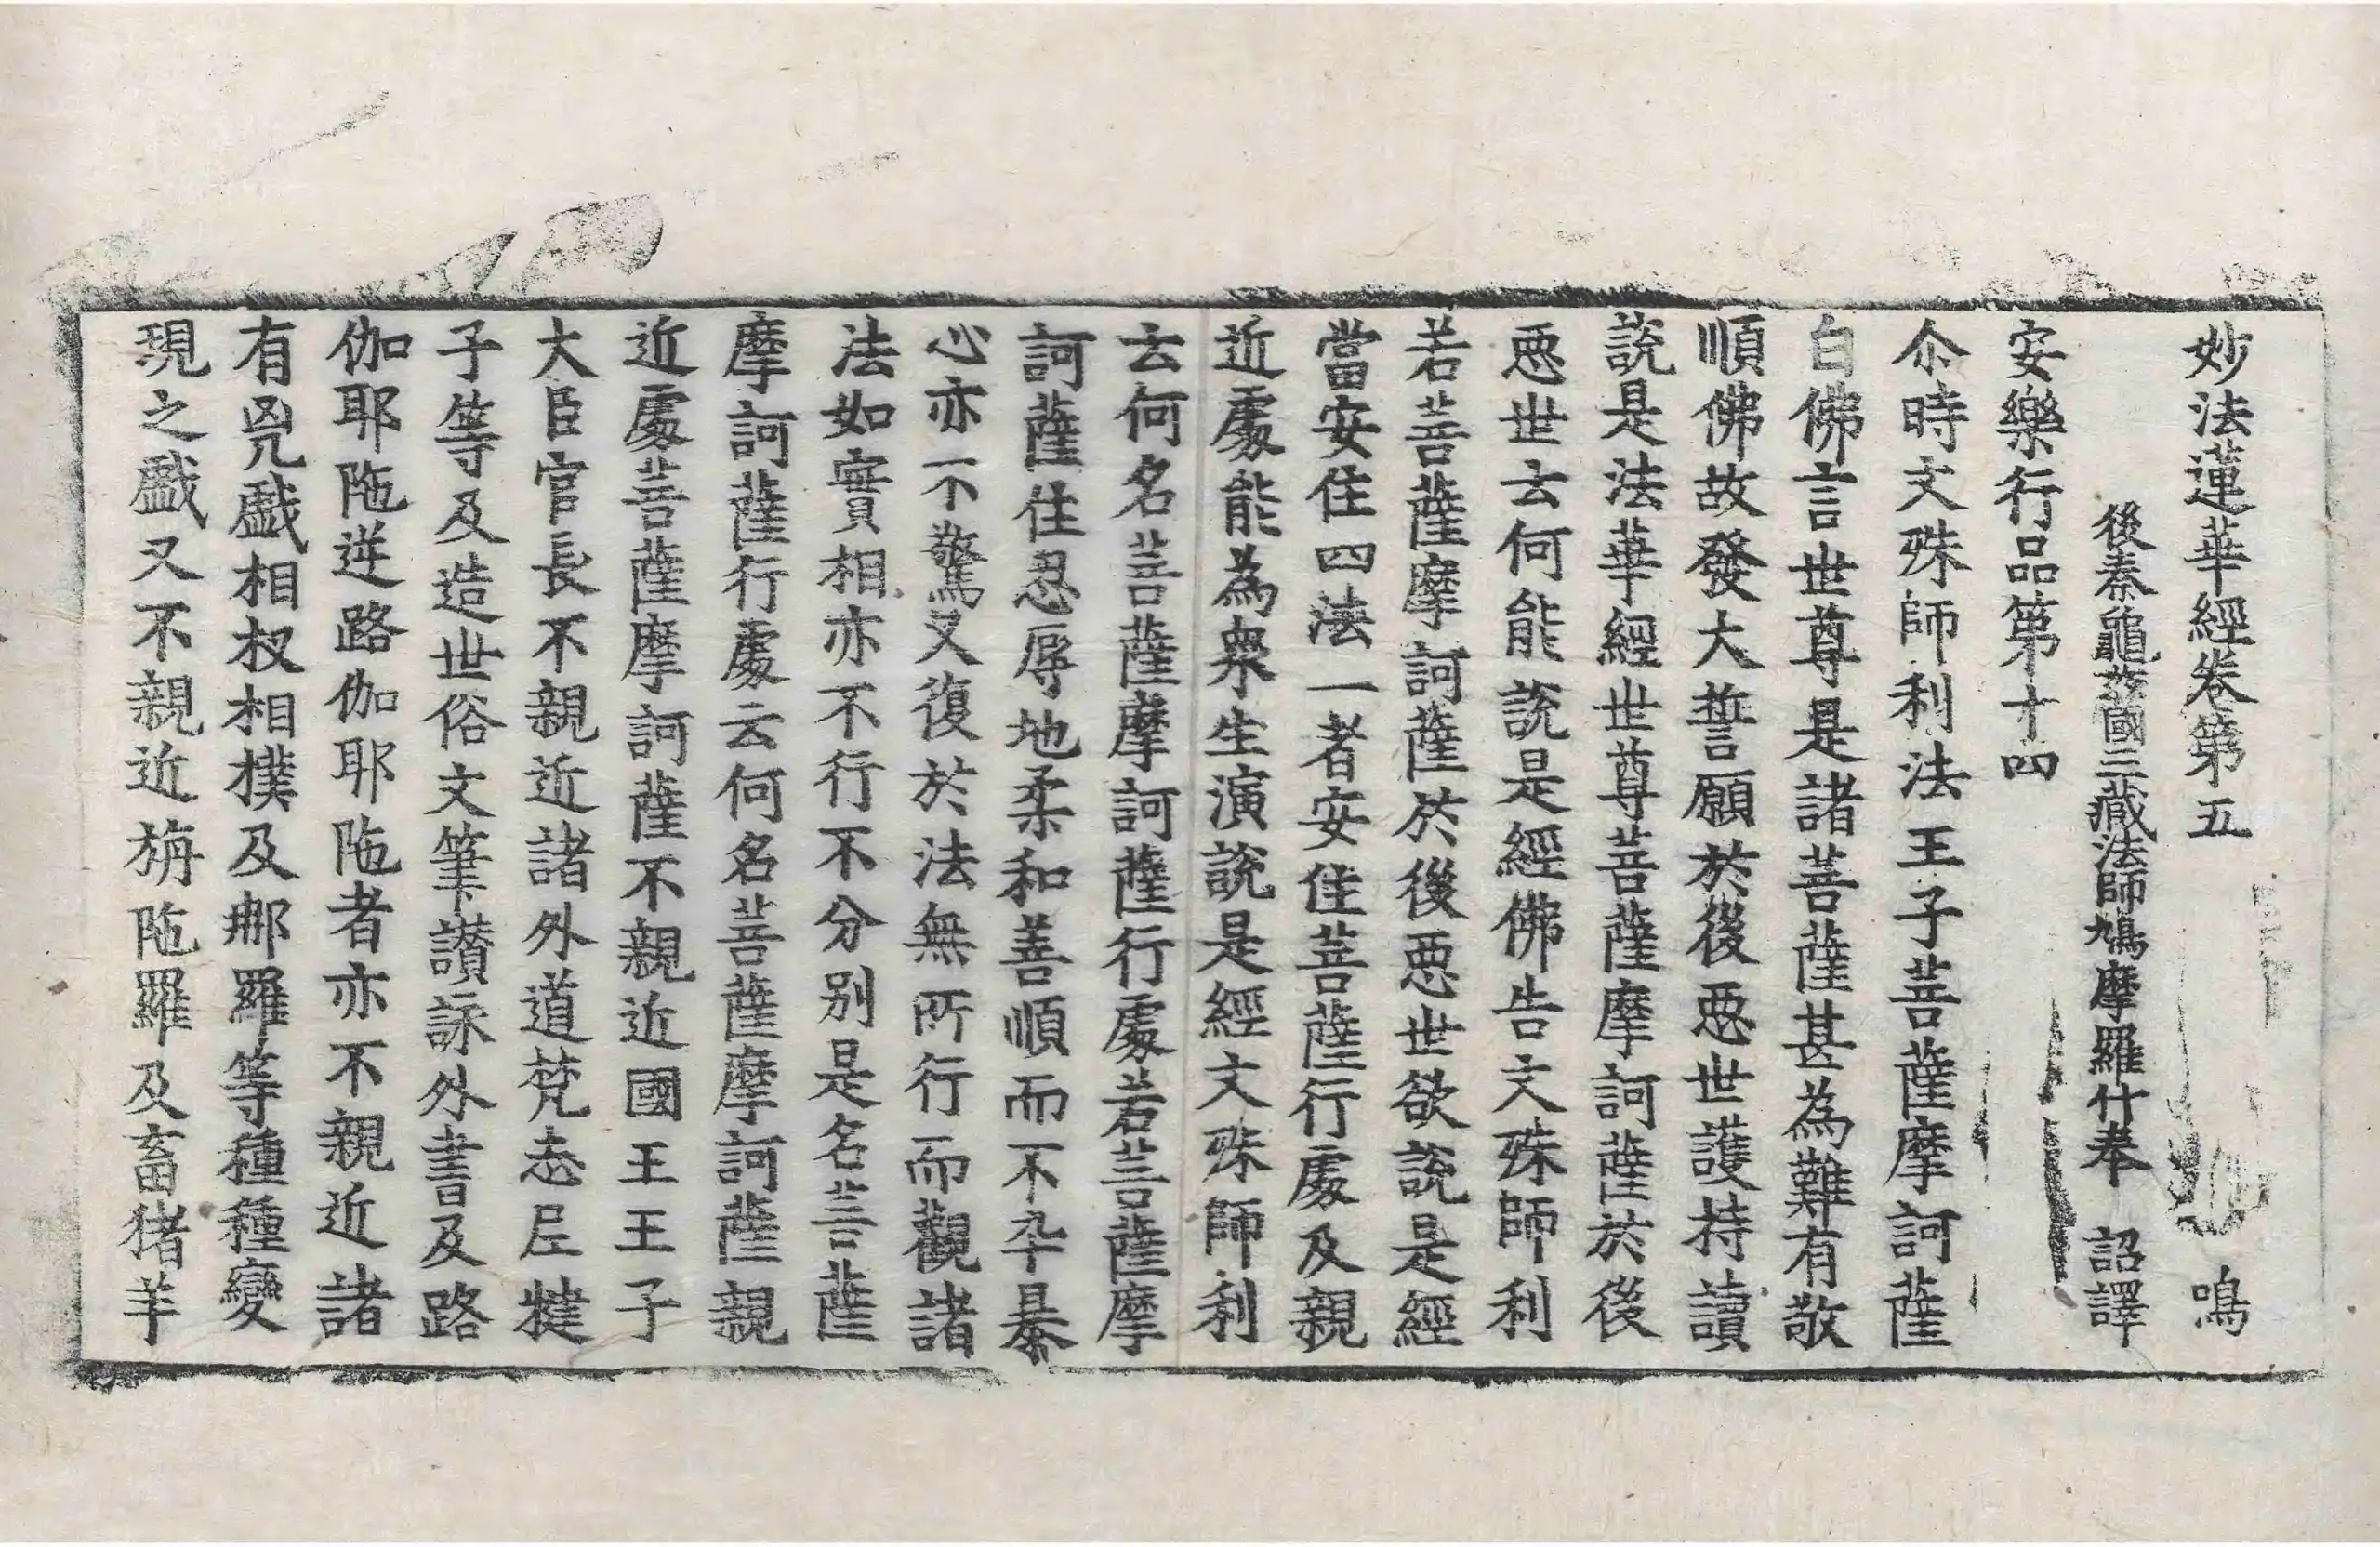 妙法蓮華經卷第五 鳴
後秦龜茲國三藏法師鳩摩羅什奉 詔譯
安樂行品第十四
尒時文殊師利法王子菩薩摩訶薩
白佛言世尊是諸菩薩甚為難有敬
順佛故發大誓願於後惡世護持讀
說是法華經世尊菩薩摩訶薩於後
惡世云何能說是經佛告文殊師利
若菩薩摩訶薩於後惡世欲說是經
當安住四法一者安住菩薩行處及親
近處能為衆生演說是經文殊師利
云何名菩薩摩訶薩行處若菩薩摩
訶薩住忍辱地柔和善順而不卒暴
心亦不驚又復於法無所行而觀諸
法如實相亦不行不分别是名菩薩
摩訶薩行處云何名菩薩摩訶薩親
近處菩薩摩訶薩不親近國王王子
大臣官長不親近諸外道梵志尼揵
子等及造世俗文筆讃詠外書及路
伽耶陁逆路伽耶陁者亦不親近諸
有兇戱相扠相撲及那羅等種種變
現之戱又不親近旃陁羅及畜猪羊